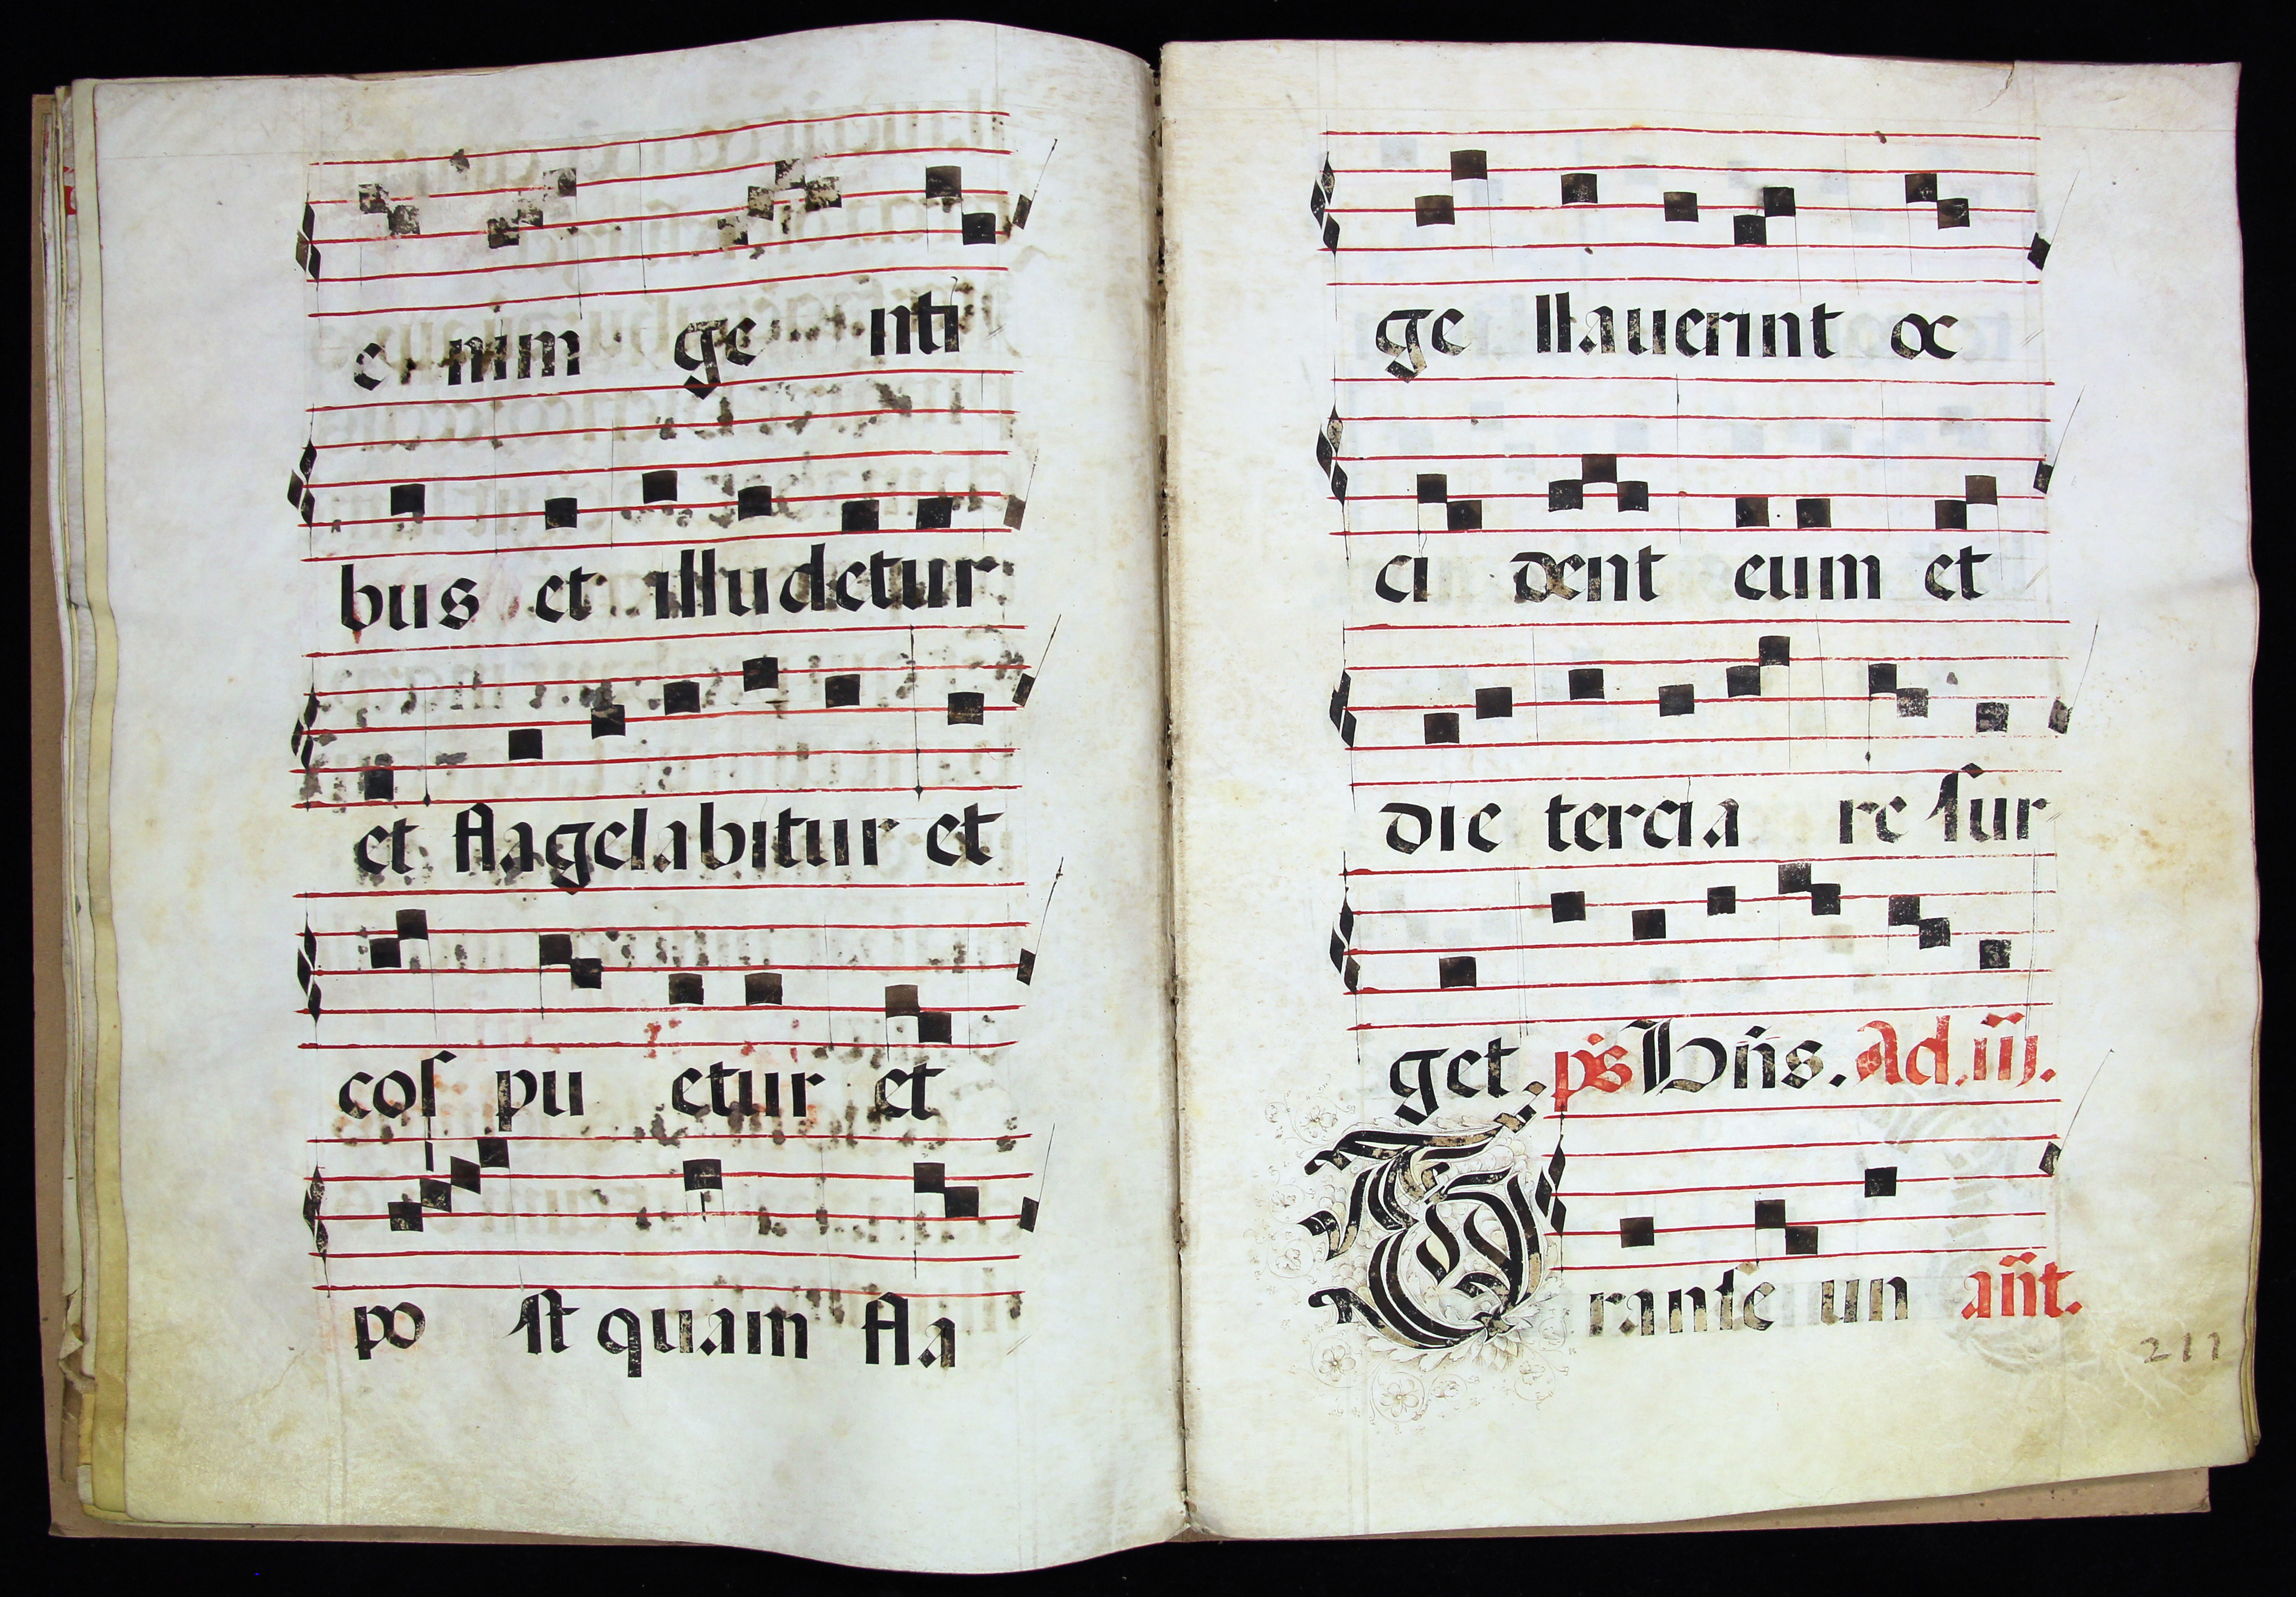 e nim ge nti
bus et illudetur
et flagelabitur et
cos pu etur et
po st quam fla
ge llauerint oc
ci dent eum et
die tercia re sur
get. ps Dñs. Ad. iij.
T ranse un añt.
211